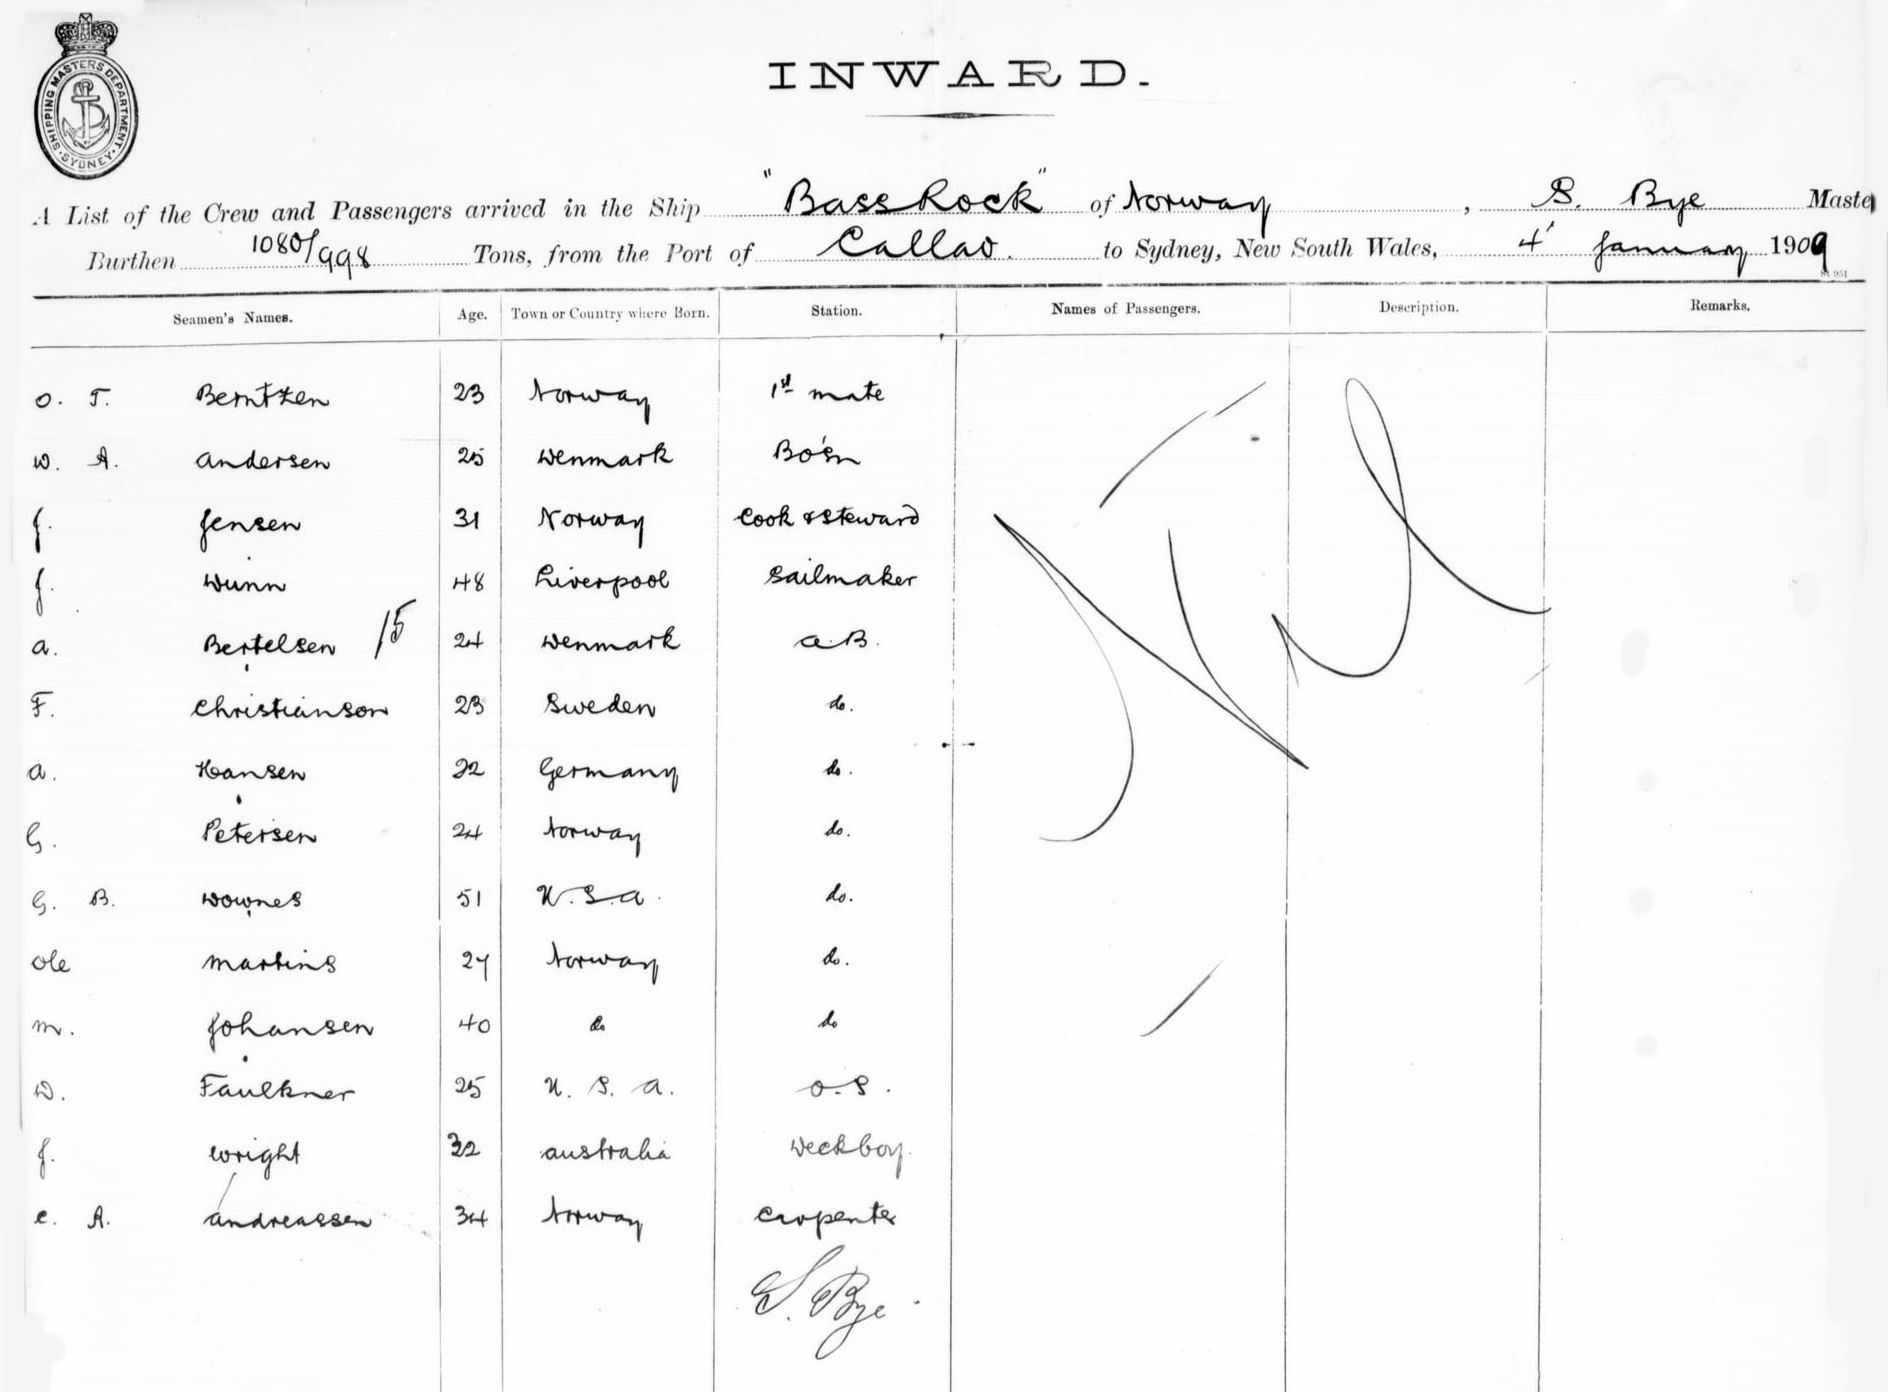 SHIPPING MASTERS DEPARTMENT
SYDNEY
INWARD.
A List of the Crew and Passengers arrived in the Ship "Bass Rock" of Norway, S. Bye Maste
Burthen 1080/998 Tons, from the Port of Callao. to Sydney, New South Wales, 4' January 1909
Seamen's Names. Age. Town or Country where Born. Station. Names of Passengers. Description. Remarks.
Nil
O. T. Berntzen 23 Norway 1st mate
W. A. Andersen 25 Denmark Bo'sn
J. Jensen 31 Norway Cook & Steward
J. Dunn 48 Liverpool Sailmaker
A. Bertelsen 15 24 Denmark A.B.
F. Christianson 23 Sweden do.
A. Hansen 22 Germany do.
G. Petersen 24 Norway do.
G. B. Downes 51 U.S.A. do.
Ole Martins 27 Norway do.
M. Johansen 40 do do
D. Faulkner 25 U. S. A. O.S.
J. Wright 32 Australia Deckboy.
C. A. Andreassen 34 Norway Carpenter
S. Bye.